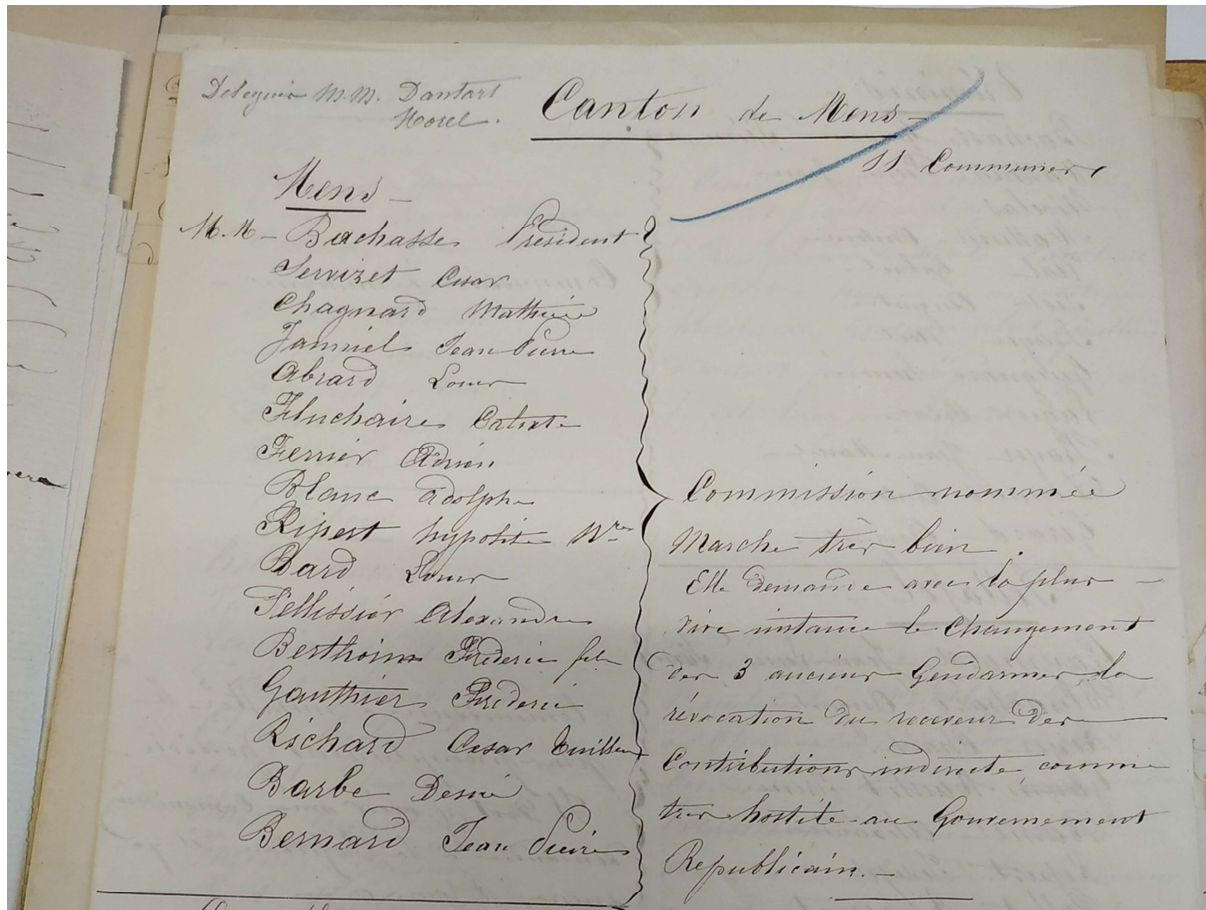 Délégués M.M. Dantart
Morel.
Canton de Mens
11 Communes
Mens
M.M - Bachasse Président
Servizet Cesar
Chagnard Mathieu
Janniel Jean Pierre
Abrard Louis
Fluchaire Calixte
Ferrier Adrien
Blanc Adolphe
Ripert hypolite
Bard Louis
Pellissier Alexandre
Berthoin Frederic fils
Gauthier Frederic
Richard Cesar
Barbe Desiré
Bernard Jean Pierre
Commission nommée
Marche très bien.
Elle demande avec la plus
vive instance le Changement
des 3 anciens Gendarmes la
révocation du receveur des
Contributions indirectes comme
très hostile au Gouvernement
Republicain.